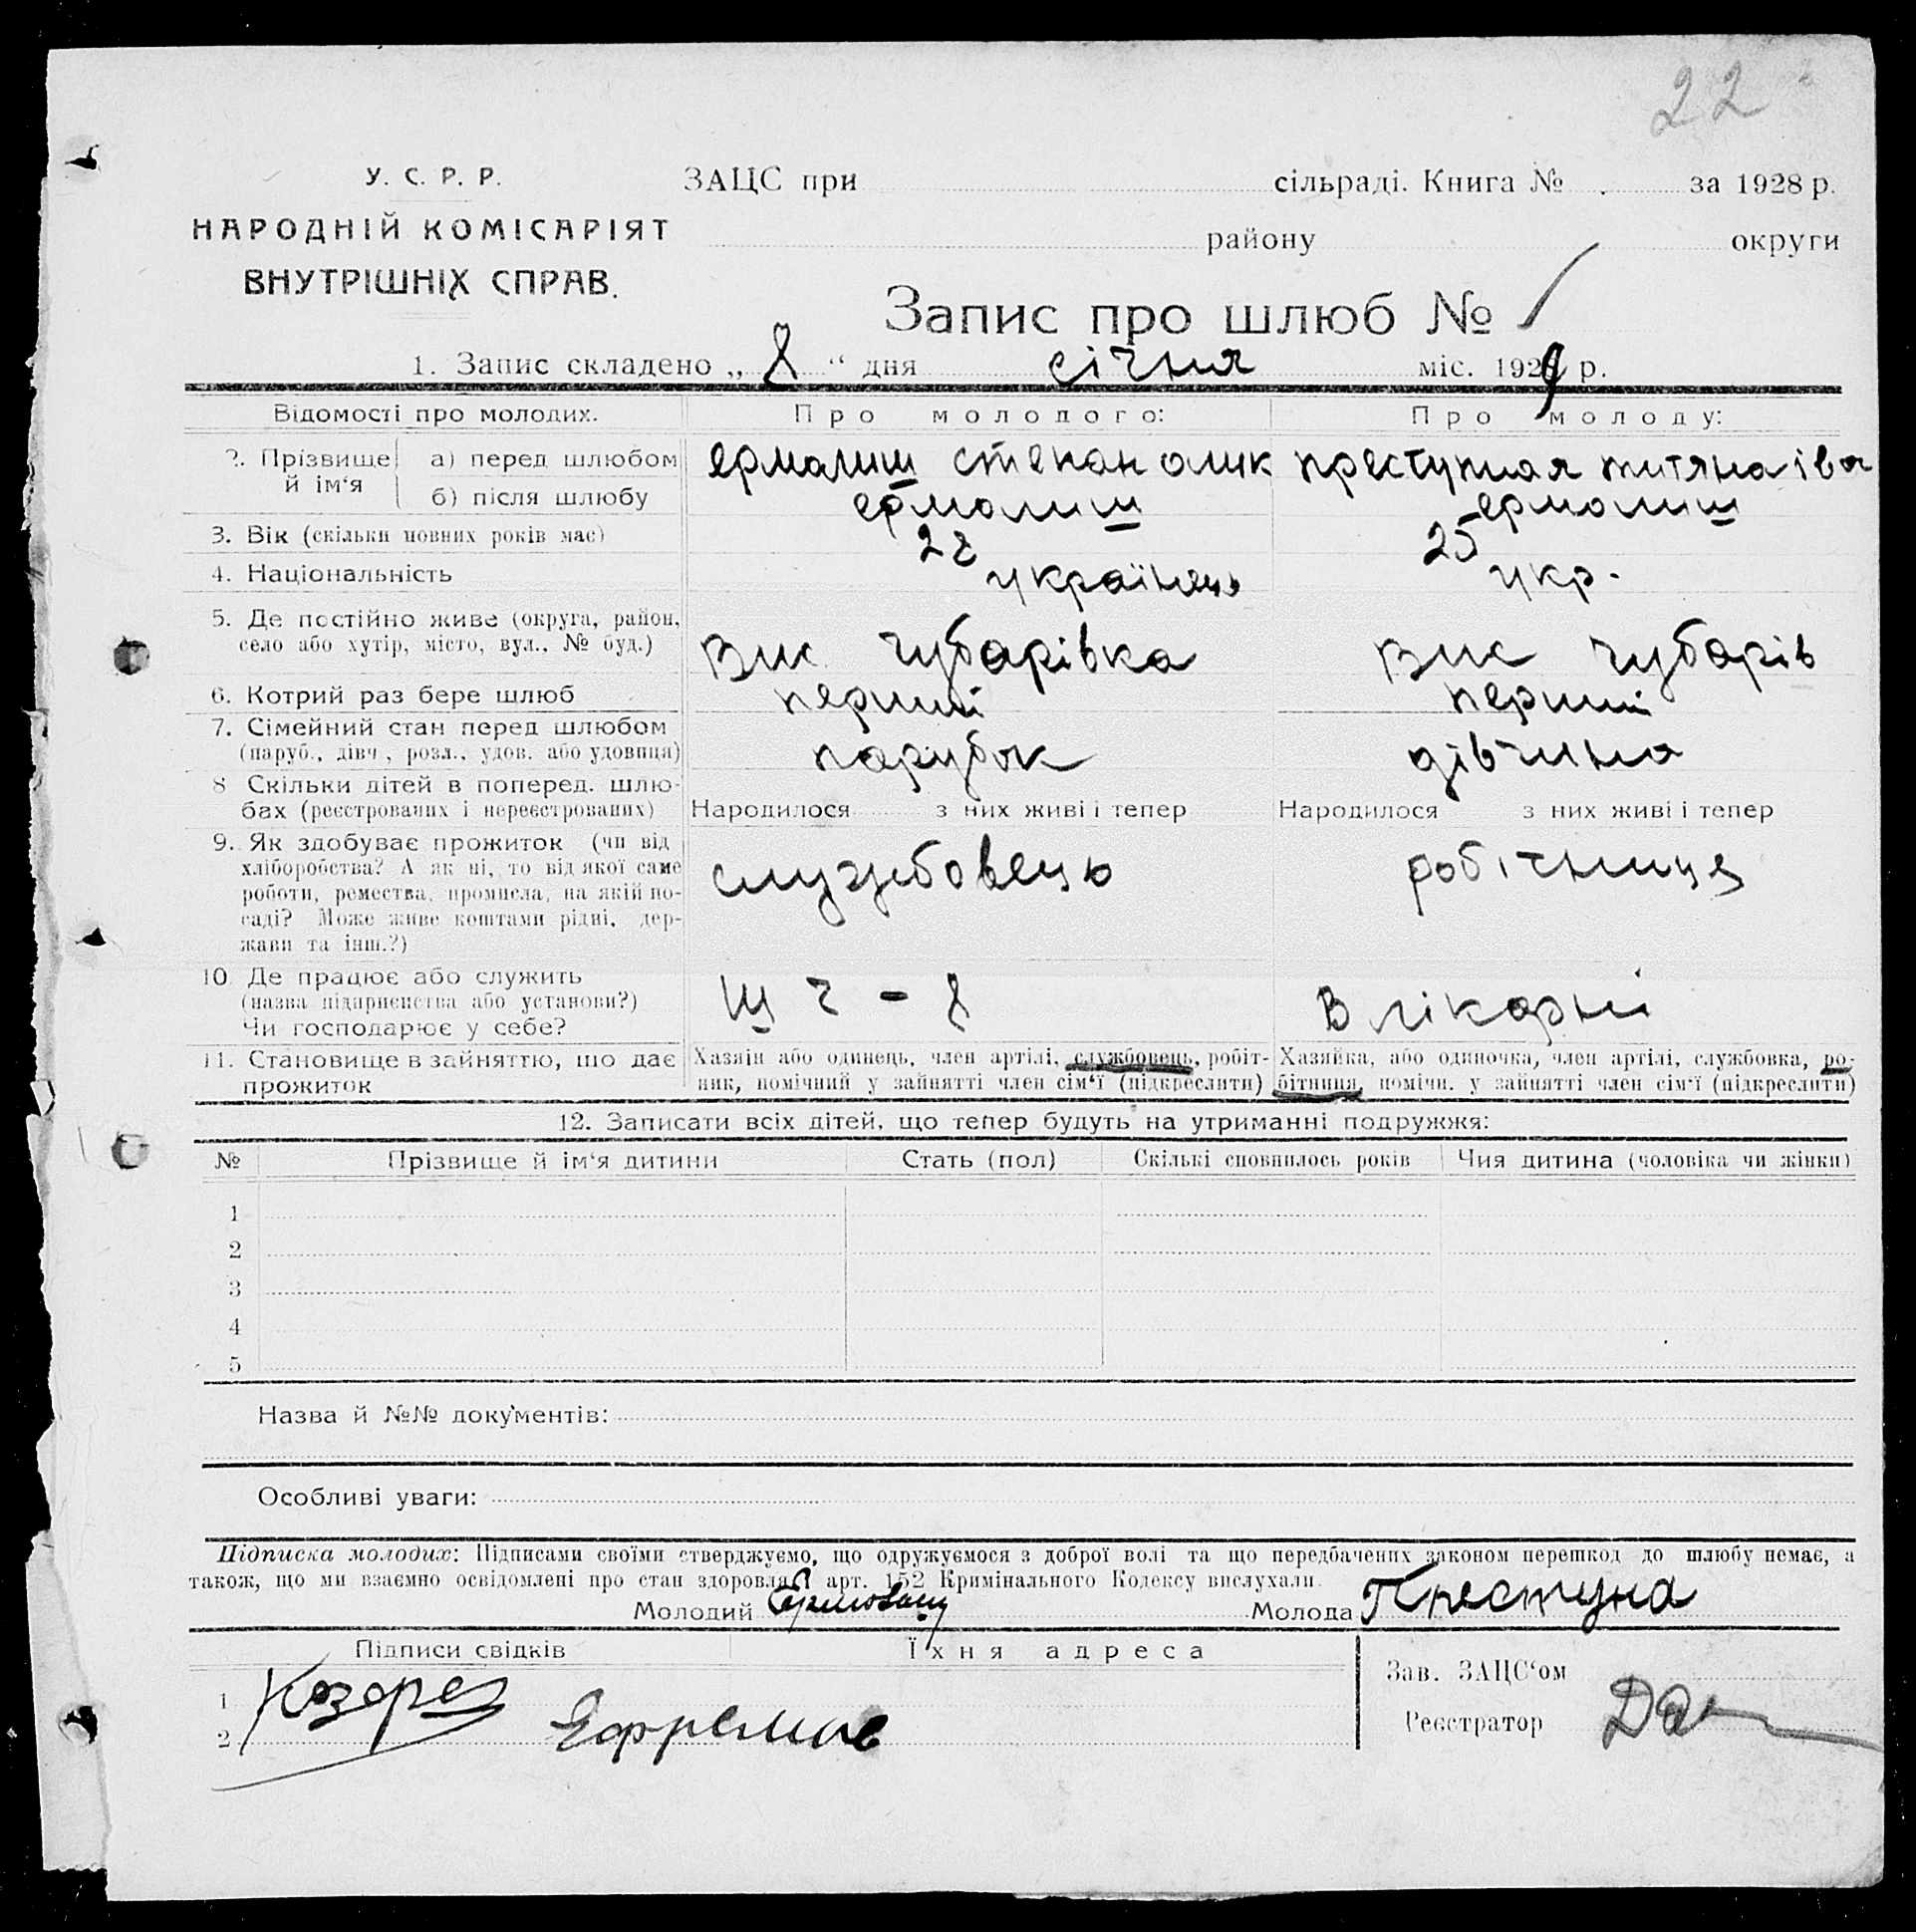 22
У. С. Р. Р.
НАРОДНІЙ КОМІСАРІЯТ
ВНУТРІШНІХ СПРАВ.
ЗАЦС при сільраді. Книга № за 1928 р.
району округи
Запис про шлюб № 1
1. Запис складено „ 8 “ дня січня міс. 1929 р.
Відомості про молодих. Про молодого: Про молоду:
2. Прізвище й ім‘я
а) перед шлюбом ермалиш степан олик преступная титяна іва
б) після шлюбу ермолиш ермолиш
3. Вік (скільки повних років має) 28 25
4. Національність українець укр.
5. Де постійно живе (округа, район, село або хутір, місто, вул., № буд.) Вис чубарівка Вис чубарів
6. Котрий раз бере шлюб перший перший
7. Сімейний стан перед шлюбом (паруб., дівч., розл., удов. або удовиця) парубок дівчина
8 Скільки дітей в поперед. шлюбах (реєстрованих і нереєстрованих) Народилося з них живі і тепер Народилося з них живі і тепер
9. Як здобуває прожиток (чи від хліборобства? А як ні, то від якої саме роботи, ремества, промисла, на якій посаді? Може живе коштами рідні, держави та інш.?) службовець робітниця
10 Де працює або служить (назва підприємства або установи?) Чи господарює у себе? Шч - 8 В лікарні
11. Становище в зайняттю, що дає прожиток
Хазяїн або одинець, член артілі, службовець, робітник, помічний у зайнятті член сім‘ї (підкреслити)
Хазяйка, або одиночка, член артілі, службовка, робітниця, помічн. у зайнятті член сім‘ї (підкреслити)
12. Записати всіх дітей, що тепер будуть на утриманні подружжя:
№ Прізвище й ім‘я дитини Стать (пол) Скількі сповнилось років Чия дитина (чоловіка чи жінки)
1
2
3
4
5
Назва й №№ документів:
Особливі уваги:
Підписка молодих: Підписами своїми стверджуємо, що одружуємося з доброї волі та що передбачених законом перешкод до шлюбу немає, а
також, що ми взаємно освідомлені про стан здоровля й арт. 152 Кримінального Кодексу вислухали.
Молодий Молода Преступна
Підписи свідків Їхня адреса
Зав. ЗАЦС‘ом
1 Козорез
2 Ефремов
Реєстратор